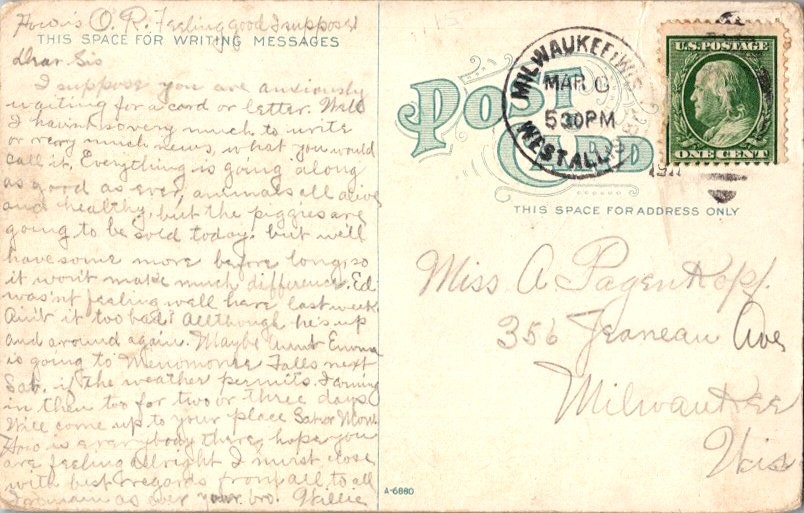 How is O. R. Feeling good I suppose!
THIS SPACE FOR WRITING MESSAGES
Dear Sis
I suppose you are anxiously
waiting for a card or letter. Well
I havn't so very much to write
or very much news, what you would
call it. Everything is going along
as good as ever, animals all alive
and healthy, but the piggies are
going to be sold today. but we'll
have some more before long, so
it won't make much difference. Ed
was'nt feeling well here last week
Ain't it too bad? Allthough he's up
and around again. Maybe Aunt Emma
is going to Menomonee Falls next
Sat. if the weather permits.
in then too for two or three days
Will come up to your place Sat or Mon.
How is everybody there, hope you
are feeling alright I must close
with best regards from all to all
I remain as ever your bro. Willie
POST CARD
MILWAUKEE, WIS.
MAR 6
530PM
WEST ALLIS
1911
U.S. POSTAGE
ONE CENT
THIS SPACE FOR ADDRESS ONLY
Miss A Pagenkopf.
356 Jeaneau Ave
Milwaukee
Wis
A-6880